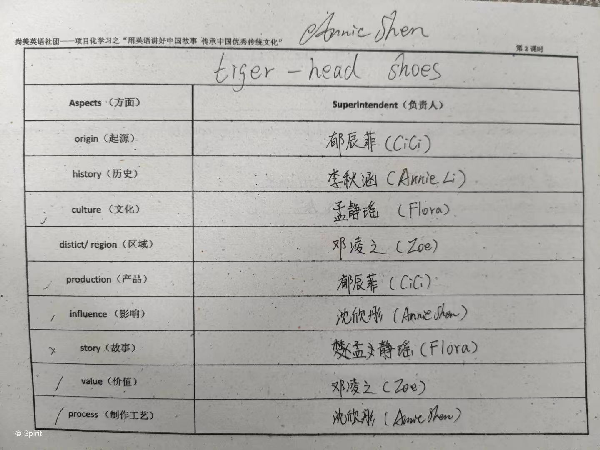 尚美英语社团——项目化学习之“用英语讲好中国故事 传承中国优秀传统文化” Annie Shen
第2课时
tiger-head shoes
Aspects（方面） Superintendent（负责人）
origin（起源） 郁辰菲(CiCi)
history（历史） 李秋涵(Annie Li)
culture（文化） 孟静瑶 (Flora)
distict/ region（区域） 邓凌之(Zoe)
production（产品） 郁辰菲(CiCi)
influence（影响） 沈欣彤(Annie Shen)
story（故事） 孟静瑶(Flora)
value（价值） 邓凌之(Zoe)
process（制作工艺） 沈欣彤(Annie Shen)